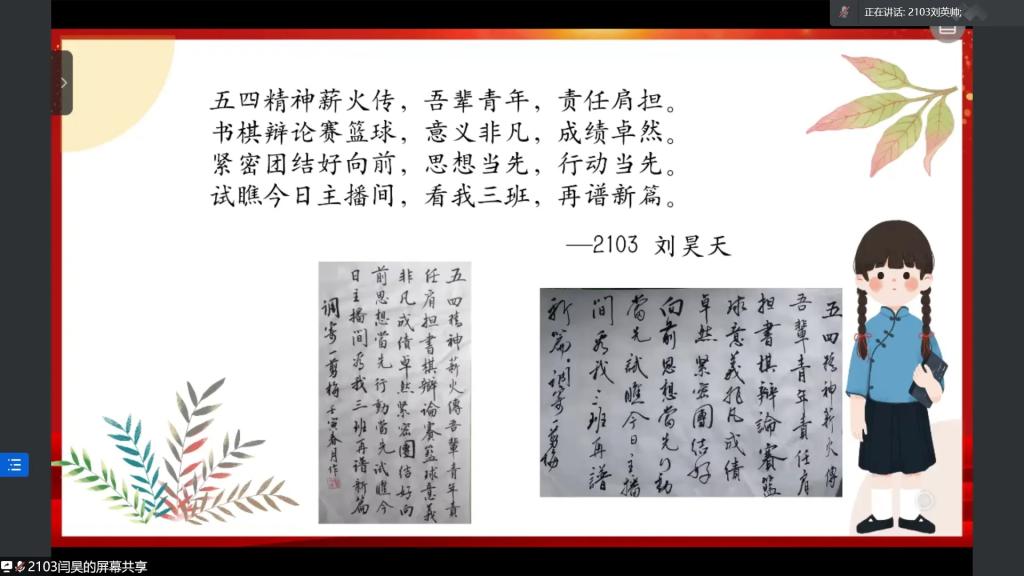 正在讲话: 2103刘英帅;
五四精神薪火传，吾辈青年，责任肩担。
书棋辩论赛篮球，意义非凡，成绩卓然。
紧密团结好向前，思想当先，行动当先。
试瞧今日主播间，看我三班，再谱新篇。
—2103 刘昊天
五四精神薪火傳吾輩青年責
任肩担書棋辯論賽籃球意義
非凡成绩卓然紧密團结好向
前思想當先行動當先试瞧今
日主播间看我三班再谱新篇
调寄一剪梅 壬寅春月作
五四精神薪火傳
吾輩青年責任肩
担書棋辯論賽籃
球意義非凡成績
卓然紧密團结好
向前思想當先行動
當先試瞧今日主播
间看我三班再譜
新篇 调寄一剪梅
2103闫昊的屏幕共享